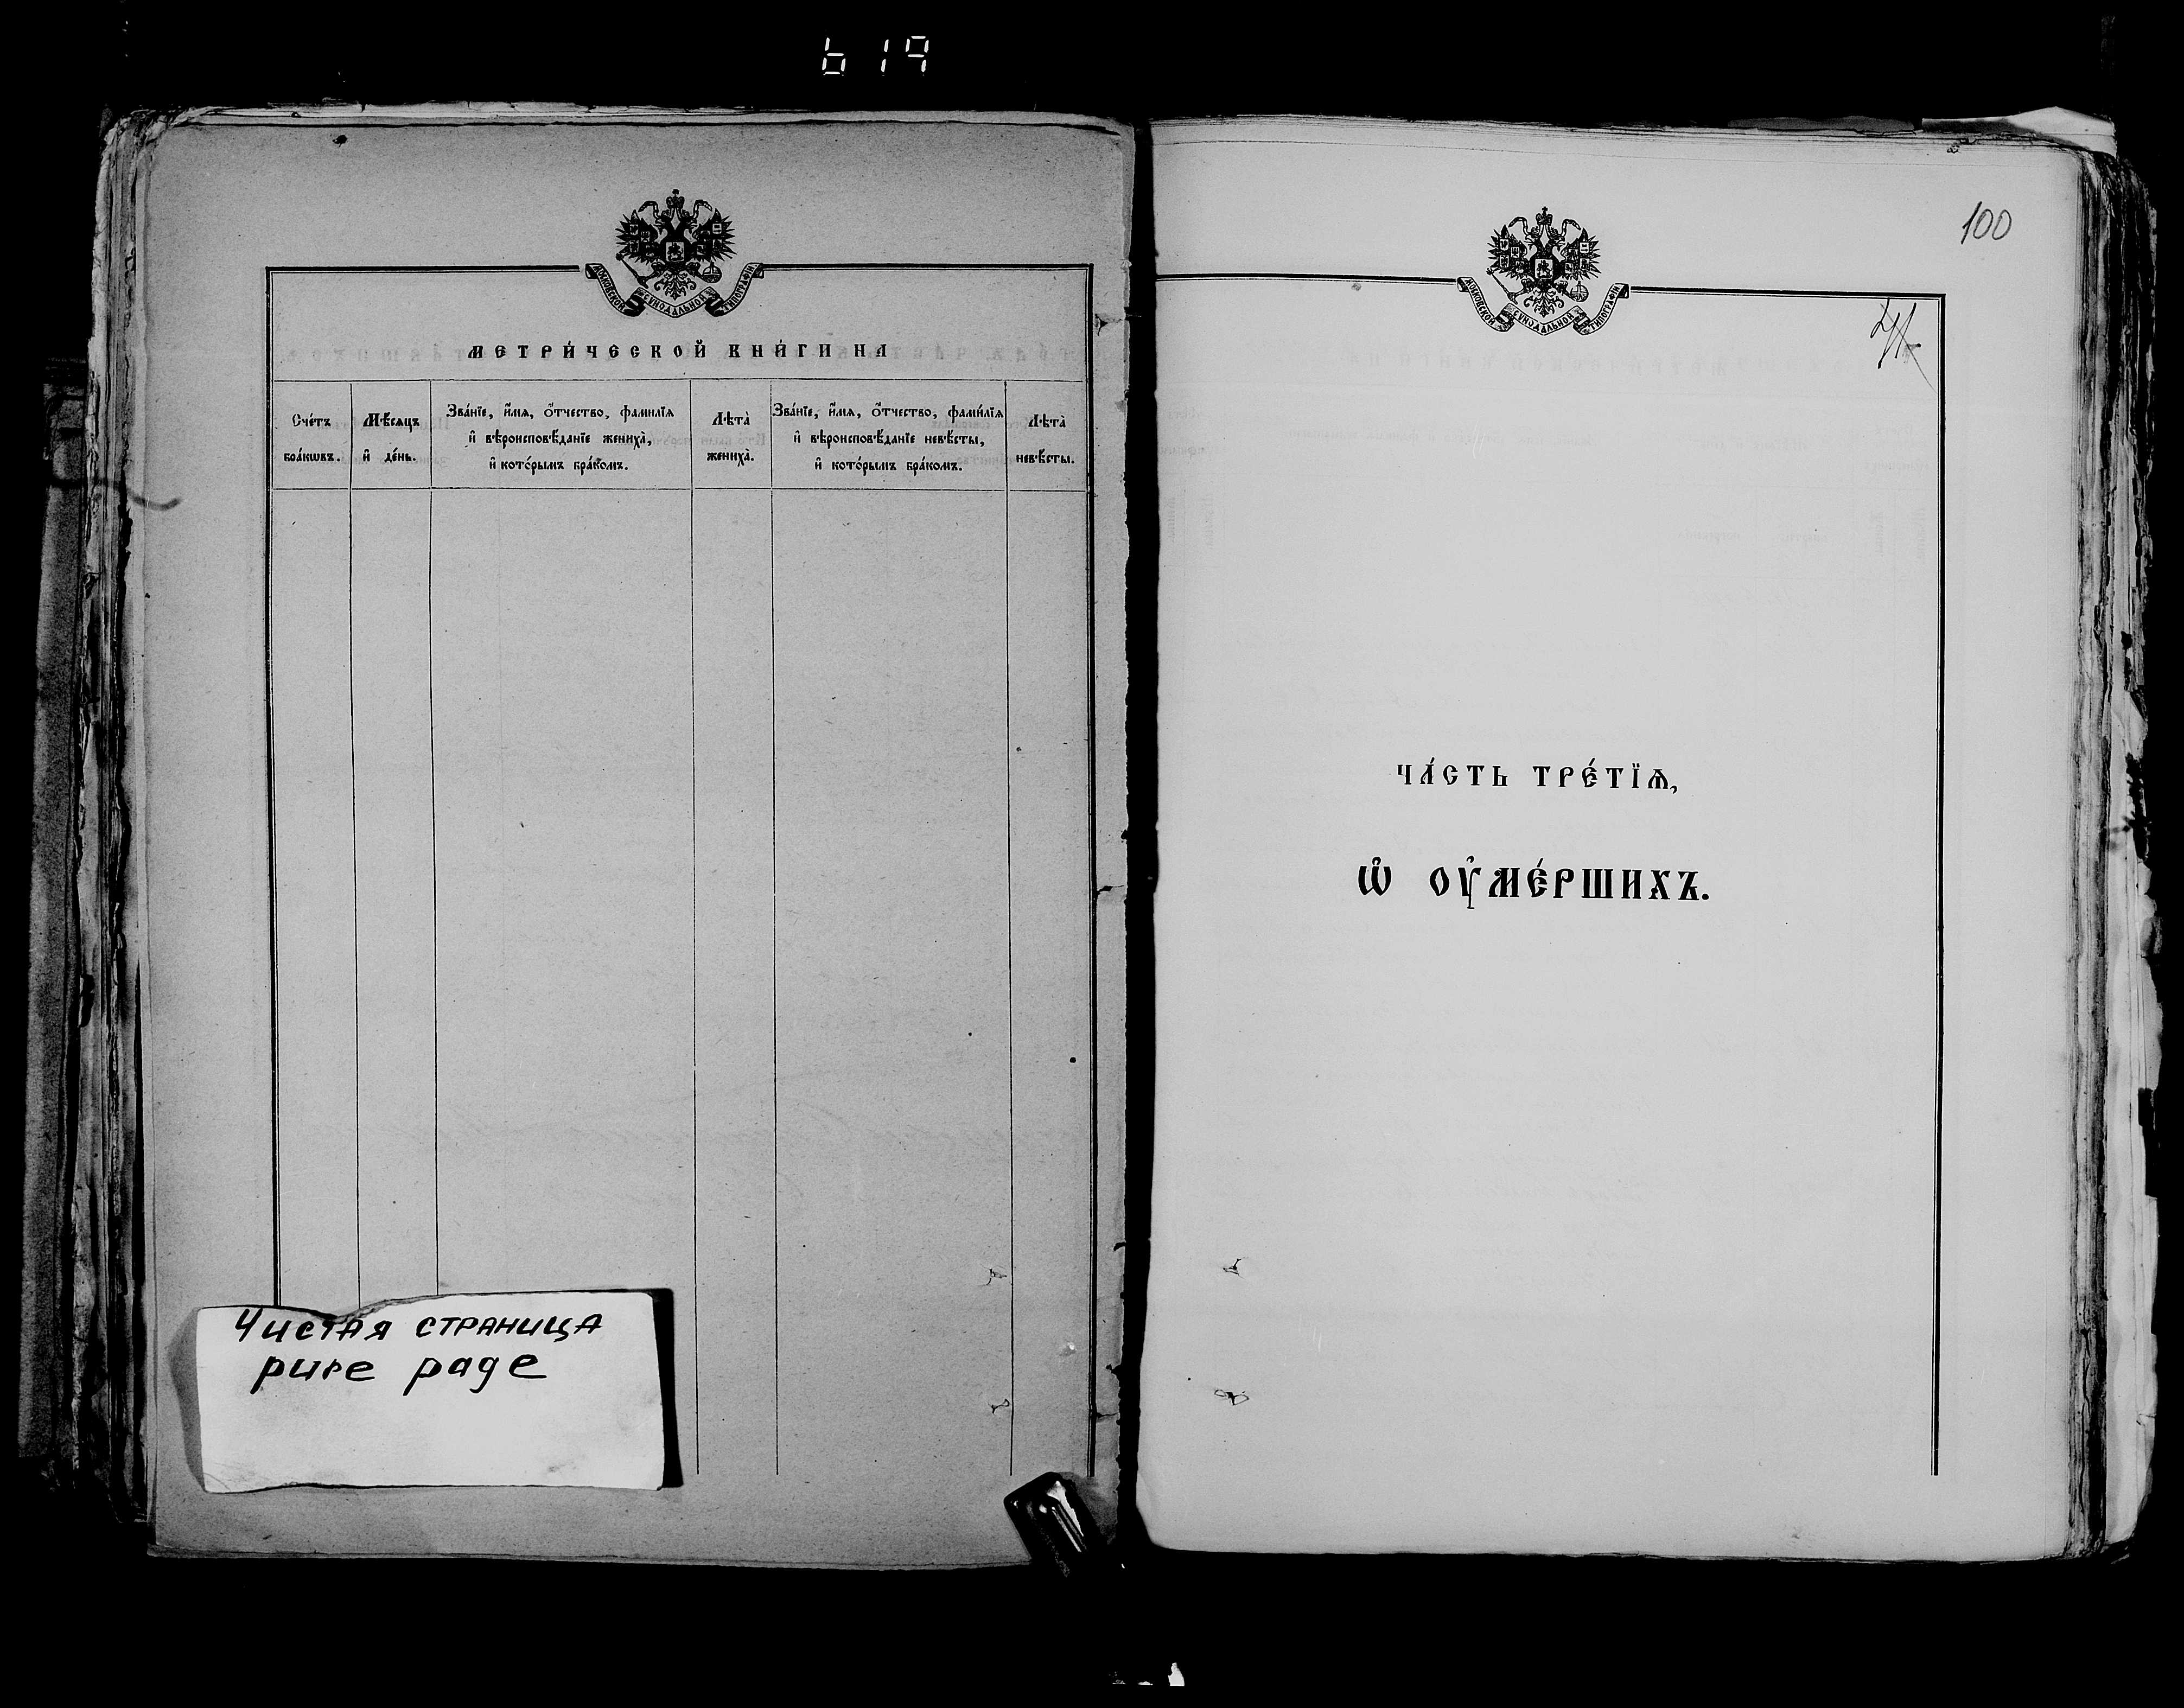 619
МОСКОВСКОЙ СѴНОДАЛЬНОЙ ТИПОГРАФІИ
МЕТРИ́ЧЕСКОЙ КНИ́ГИ НА
Сче́тъ
бра́кѡвъ.
Мѣ́сяцъ
и҆ де́нь.
Зва́нїе, и҆́мѧ, ѻ҆́тчество, фамилїѧ
и҆ вѣроисповѣ́данїе женихѧ̀,
и҆ кото́рымъ бра́комъ.
Лѣта̀
жениха̀.
Зва́нїе, и҆́мѧ, ѻ҆́тчество, фами́лїѧ
и҆ вѣроисповѣ́данїе невѣ́сты,
и҆ кото́рымъ бра́комъ.
Лѣта̀
невѣ́сты.
Чистая страница
pure page
100
МОСКОВСКОЙ СѴНОДАЛЬНОЙ ТИПОГРАФІИ
ЧА́СТЬ ТРЕ́ТЇѦ,
Ѡ҆ ОУ҆МЕ́РШИХЪ.